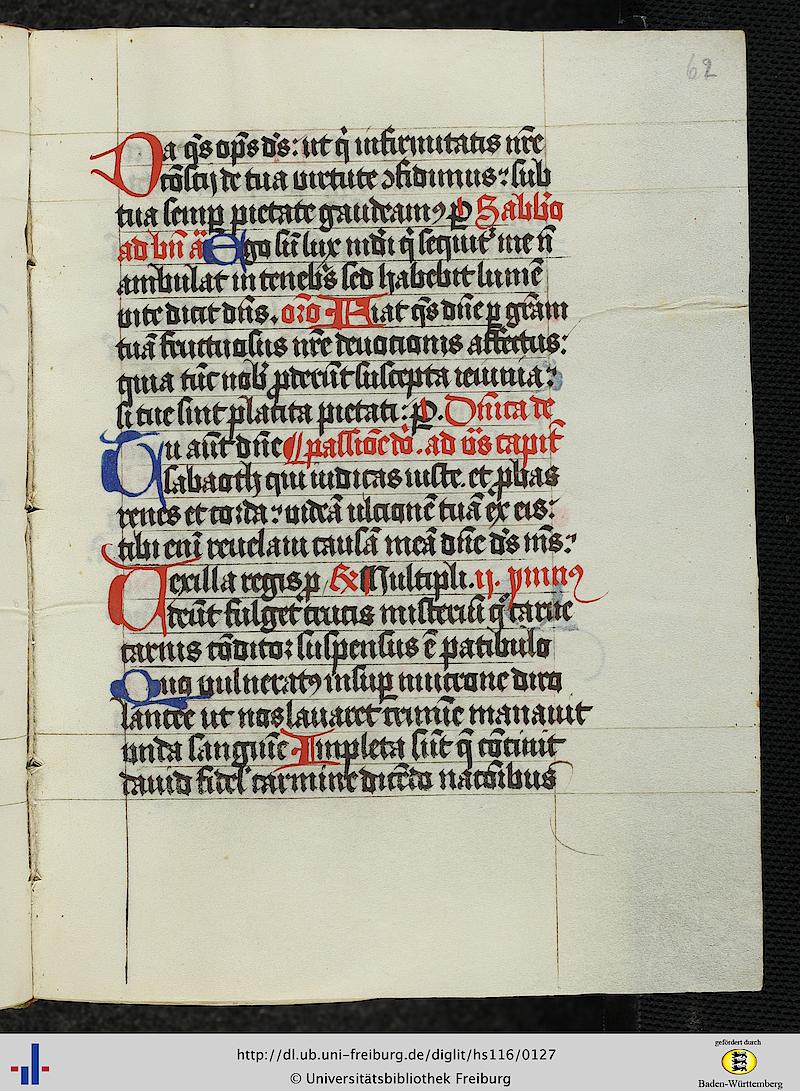 62
Da q̄s op̄s ds̄: ut q̇ infirmitatis nr̄e
cōscij de tua virtute ꝯfidimus: sub
tua semꝑ pietate gaudeamꝰ ꝑ Sabb̄o
ad bn̄ a᷑ Ego sū lux mdi q̇ sequit᷑ me n̄
ambulat in tenebr̄s sed habebit lumē
vite dicit dn̄s. or̄o Fiat q̄s dn̄e ꝑ gr̄am
tuā fructuosus nr̄e deuotionis affectus:
quia tūc nob̄ ꝓderūt suscepta ieiunia:
si tue sint placita pietati: ꝑ. Dn̄ica de
Tu aūt dn̄e passiōe dō. ad vs̄ capit̄
sabaoth qui iudicas iuste. et ꝓbas
renes et corda: videā ulcionē tuā ex eis:
tibi eni reuelaui causā meā dn̄e ds̄ ms̄:
Vexilla regis ꝓ ℞ Multipli. ij. ymnꝰ
deūt fulget crucis misteriū q̄ carne
carnis cōditor suspensus ē patibulo
Quo vulneratꝰ insuꝑ mucrone diro
lancee ut nos lauaret crimīe manauit
unda sanguīe Impleta sūt q̄ cōcinit
dauid fidel᷑ carmine dicēdo nacōibus
http://dl.ub.uni-freiburg.de/diglit/hs116/0127
© Universitätsbibliothek Freiburg
gefördert durch
Baden-Württemberg